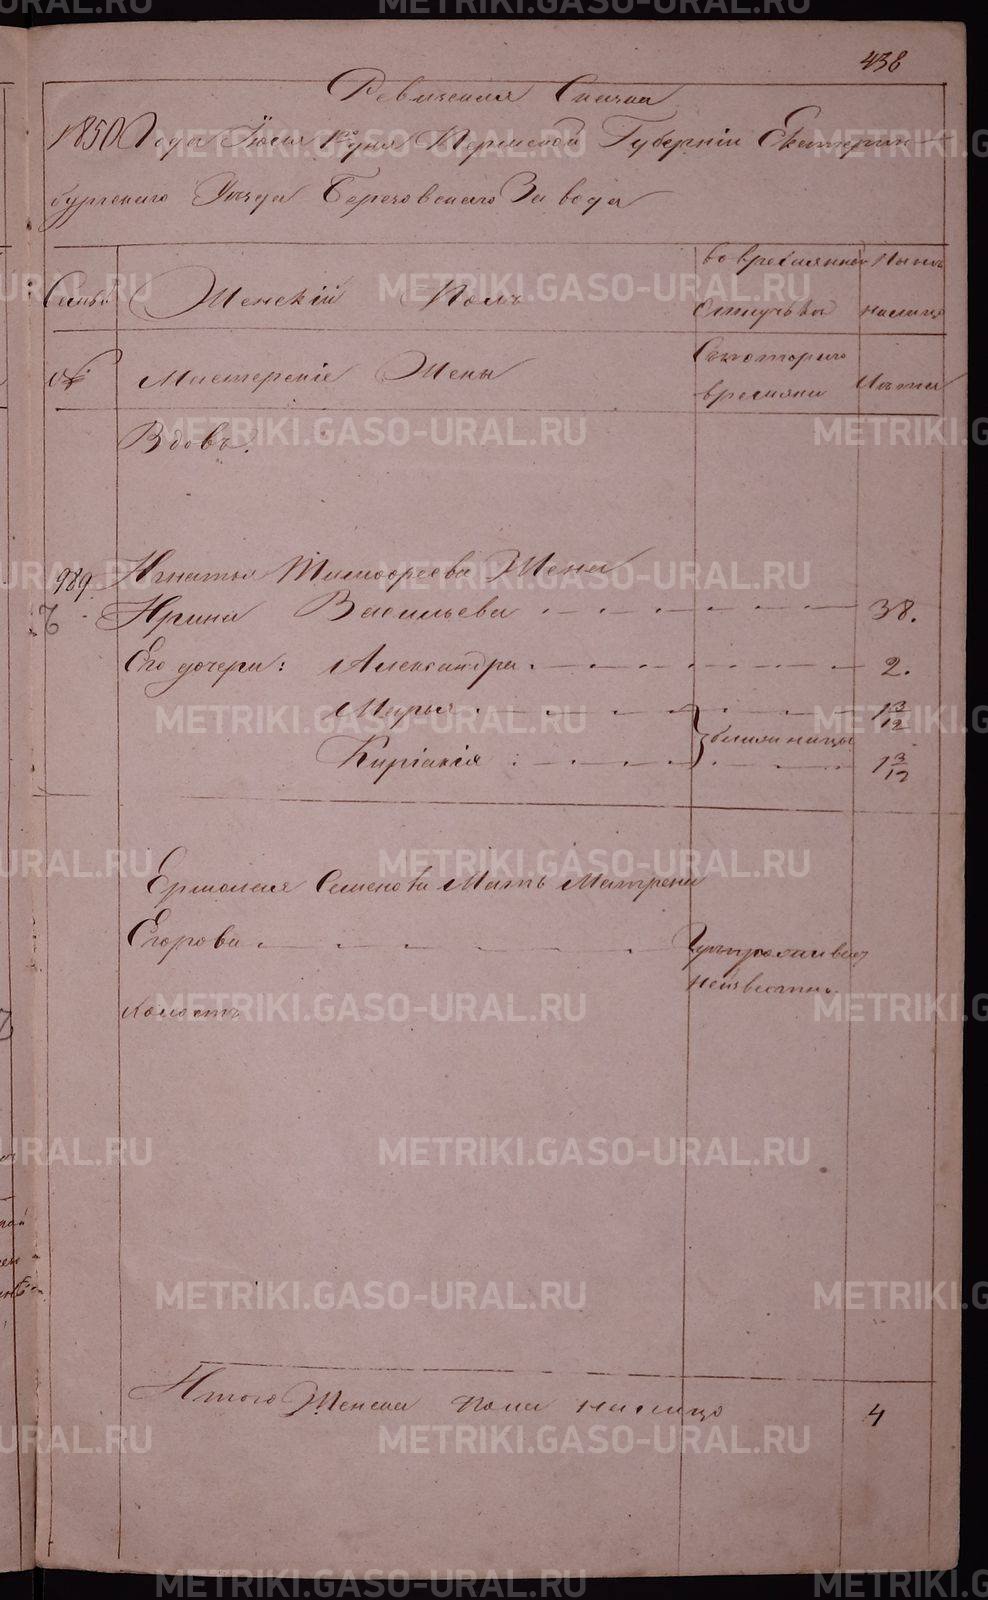 438
Ревизская Сказка
1850 Года Іюля 1го дня Пермской Губерніи Екатерин-
бургскаго Уѣзда Березовскаго Завода
Семьи
Женскій Полъ
во временной
отлучькѣ
Нынѣ
налицо
№
Мастерскіе Жены
Съ котораго
времяни
Лѣта
Вдовъ.
989. Игнатья Тимофеева Жена
Ирина Васильева 38.
Его дочери: Александра 2.
Марья 1 3/12
близницы
Киріакія 1 3/12
Ермолая Семенова Мать Матрена
Егорова
Гдѣ проживаетъ
неизвестно.
Холостъ
Итого Женска пола налицо 4
METRIKI.GASO-URAL.RU